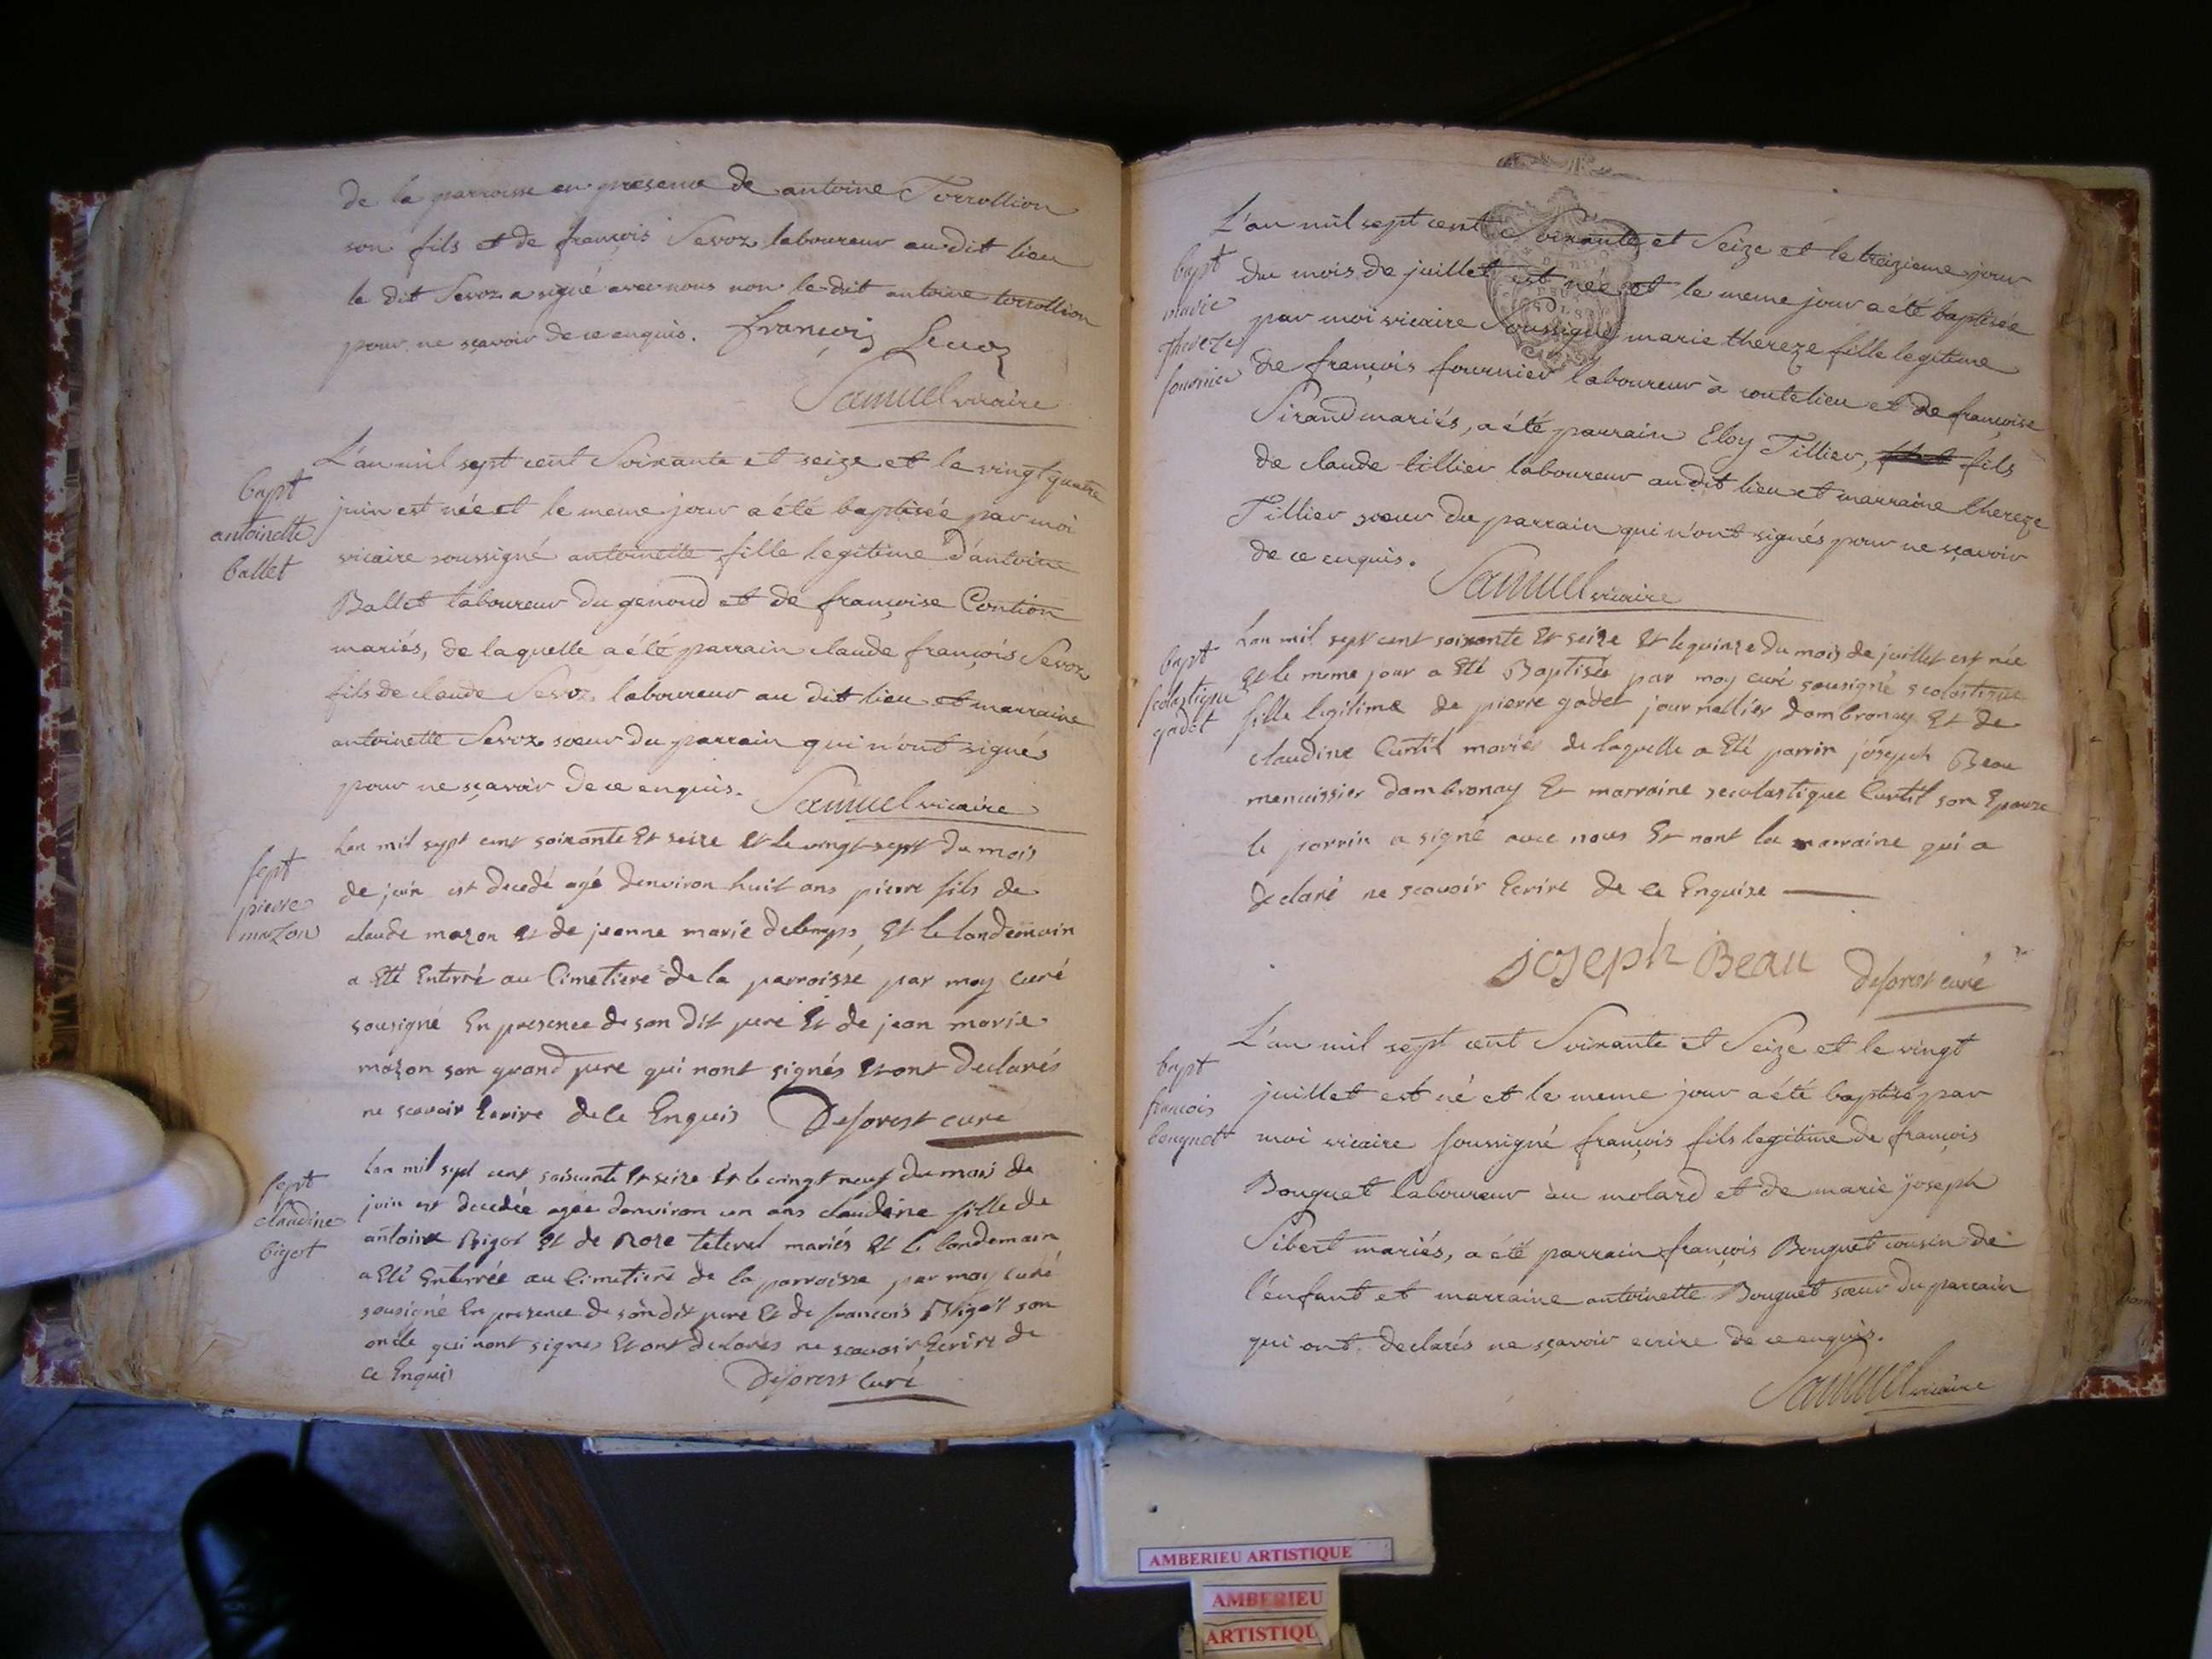 de la parroisse en presence de antoine Torrollion
son fils et de françois Sevoz laboureur audit lieu
le dit Sevoz a signé avec nous non le dit antoine torrollion
pour ne sçavoir de ce enquis. françois Sevoz
Samuel vicaire
bapt
antoinette
ballet
L'an mil sept cent Soixante et seize et le vingt quatre
juin est née et le meme jour a été baptisée par moi
vicaire soussigné antoinette fille legitime d'antoine
Ballet laboureur du genoud et de françoise Contion
mariés, de laquelle a été parrain claude françois Sevoz
fils de claude Sevoz laboureur au dit lieu et marraine
antoinette Sevoz sœur du parrain qui n'ont signés
pour ne sçavoir de ce enquis. Samuel vicaire
sept
pierre
mazon
Lan mil sept cent soixante Et seize Et le vingt sept du mois
de juin est decedé agé denviron huit ans pierre fils de
claude mazon Et de jeanne marie delemps, Et le landemain
a Eté Enterré au Cimetiere de la parroisse par moy curé
sousigné En presence de son dit pere Et de jean marie
mazon son grand pere qui nont signés Et ont declarés
ne scavoir Ecrire de ce Enquis Deforest curé
sept
claudine
bigot
Lan mil sept cent soixante Et seize Et le vingt neuf du mois de
juin est decedée agée denviron un ans claudine fille de
antoine Bigot Et de Rose tetevel mariés Et le landemain
a Eté Enterrée au Cimetiere de la parroisse par moy curé
sousigné En presence de son dit pere Et de francois Bigot son
oncle qui nont signes Et ont declarés ne scavoir Ecrire de
ce Enquis Deforest Curé
bapt
marie
thereze
fournier
L'an mil sept cent Soixante et Seize et le treizieme jour
du mois de juillet est née et le meme jour a été baptisée
par moi vicaire Soussigné marie thereze fille legitime
de françois fournier laboureur à coutelieu et de françoise
Sirand mariés, a été parrain Eloy Tillier, fils
de claude tillier laboureur audit lieu et marraine thereze
Tillier sœur du parrain qui n'ont signés pour ne sçavoir
de ce enquis. Samuel vicaire
bapt
scolastique
gadet
Lan mil sept cent soixante Et seize Et le quinze du mois de juillet est née
Et le meme jour a Eté Baptisée par moy curé sousigné scolastique
fille legitime de pierre gadet journallier dambronay Et de
claudine Curtil mariés de laquelle a Eté parrin joseph Beau
menuissier dambronay Et marraine secolastique Curtil son Epouze
le parrin a signé avec nous Et nont la marraine qui a
declaré ne scavoir Ecrire de ce Enquise
joseph Beau Deforest curé
bapt
francois
bouguet
L'an mil sept cent Soixante et Seize et le vingt
juillet est né et le meme jour a été baptisé par
moi vicaire soussigné françois fils legitime de françois
Bouguet laboureur au molard et de marie joseph
Sibert mariés, a été parrain françois Bouguet cousin de
l'enfant et marraine antoinette Bouguet sœur du parrain
qui ont declarés ne sçavoir ecrire de ce enquis.
Samuel vicaire
AMBERIEU ARTISTIQUE
AMBERIEU
ARTISTIQU